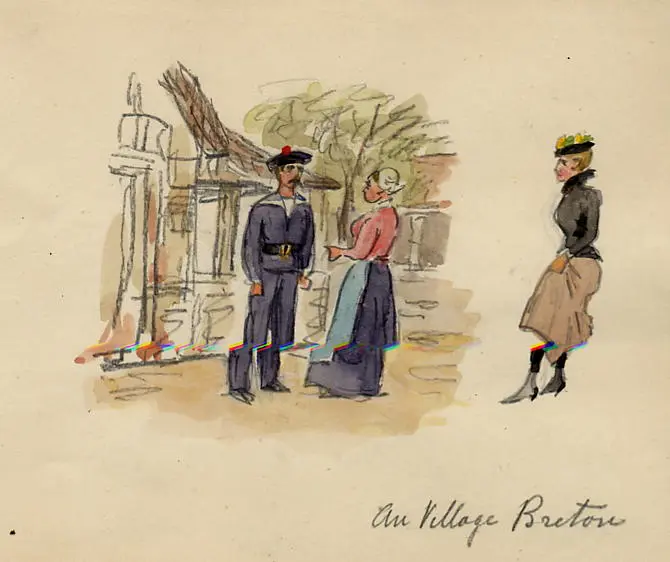 Au Village Breton